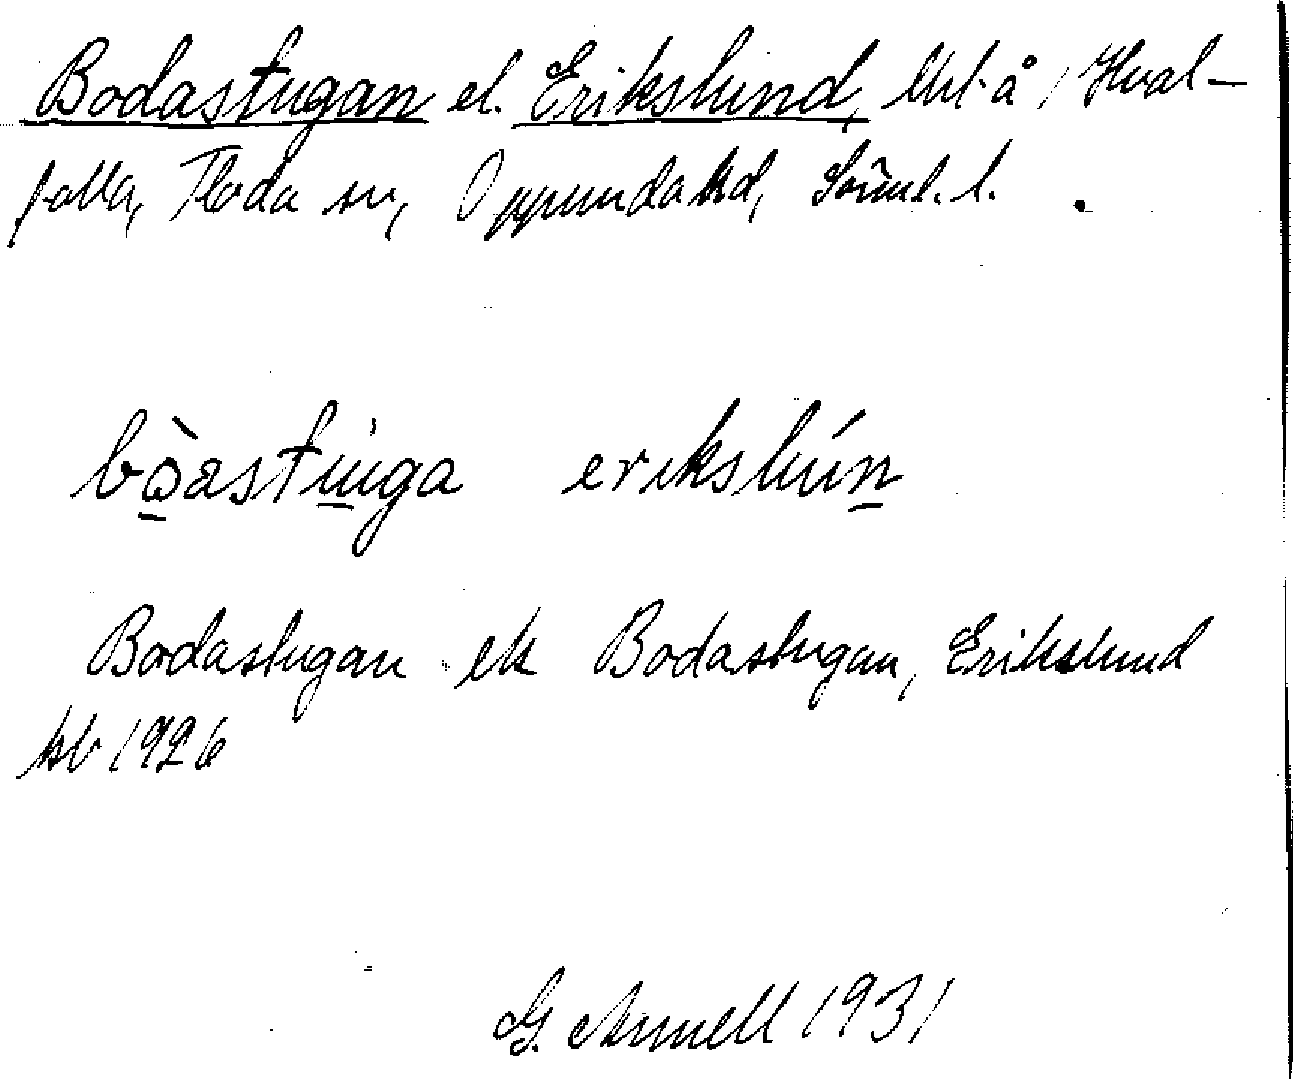 Bodastugan el. Erikslund, lht å 1 Hval-
falla, Floda sn, Oppunda hd, Söml. l.
bo̱astu̱ga erikslúṉ
Bodastugan ek Bodastugan, Erikslund
kb 1926
G. Arnell 1931